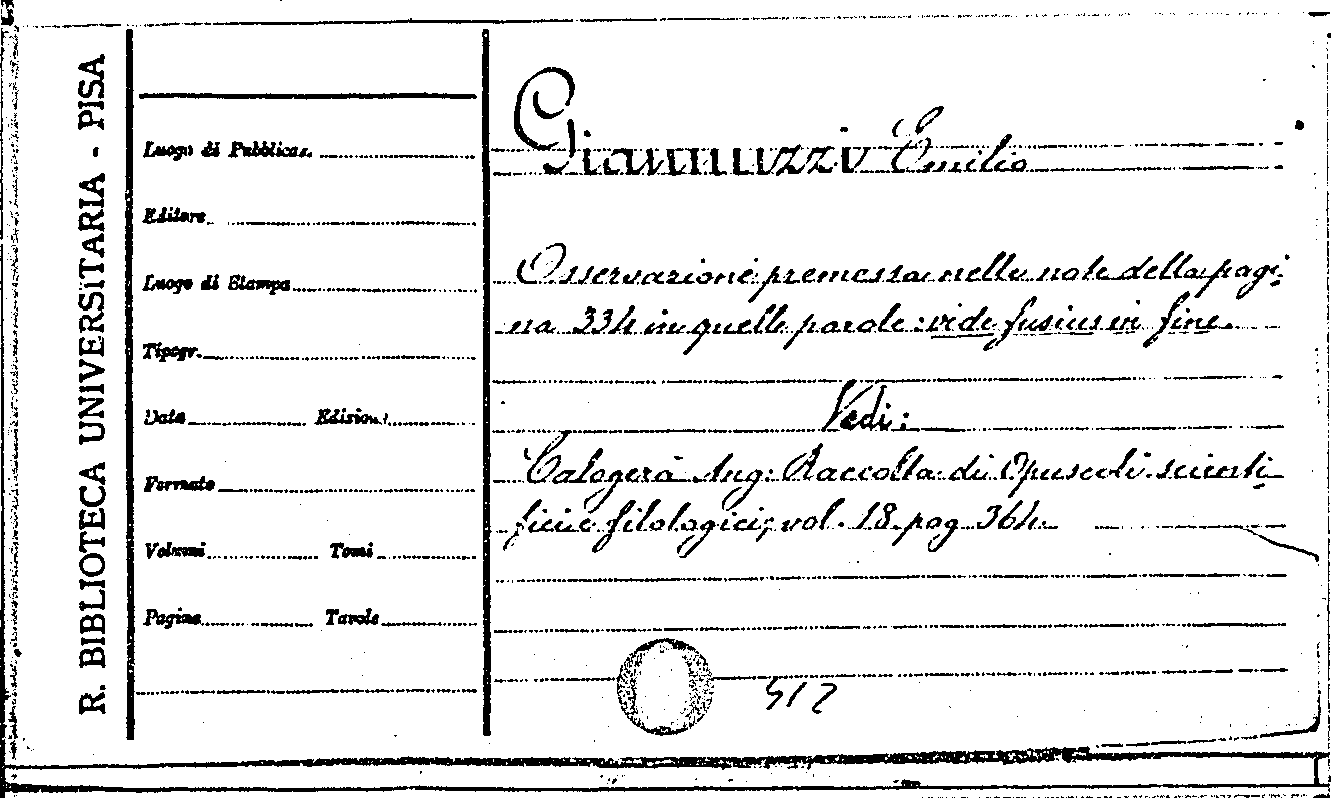 R. BIBLIOTECA UNIVERSITARIA - PISA
Luogo di Pubblicaz.
Editore
Luogo di Stampa
Tipogr.
Data Edizione
Formato
Volumi Tomi
Pagine Tavole
Giannuzzi Emilio
Osservazione premessa nelle note della pagi-
na 334 in quelle parole: vide fusius in fine.
Vedi:
Calogerà Ang: Raccolta di Opuscoli scienti-
fici e filologici, vol. 18 pag 364.
512